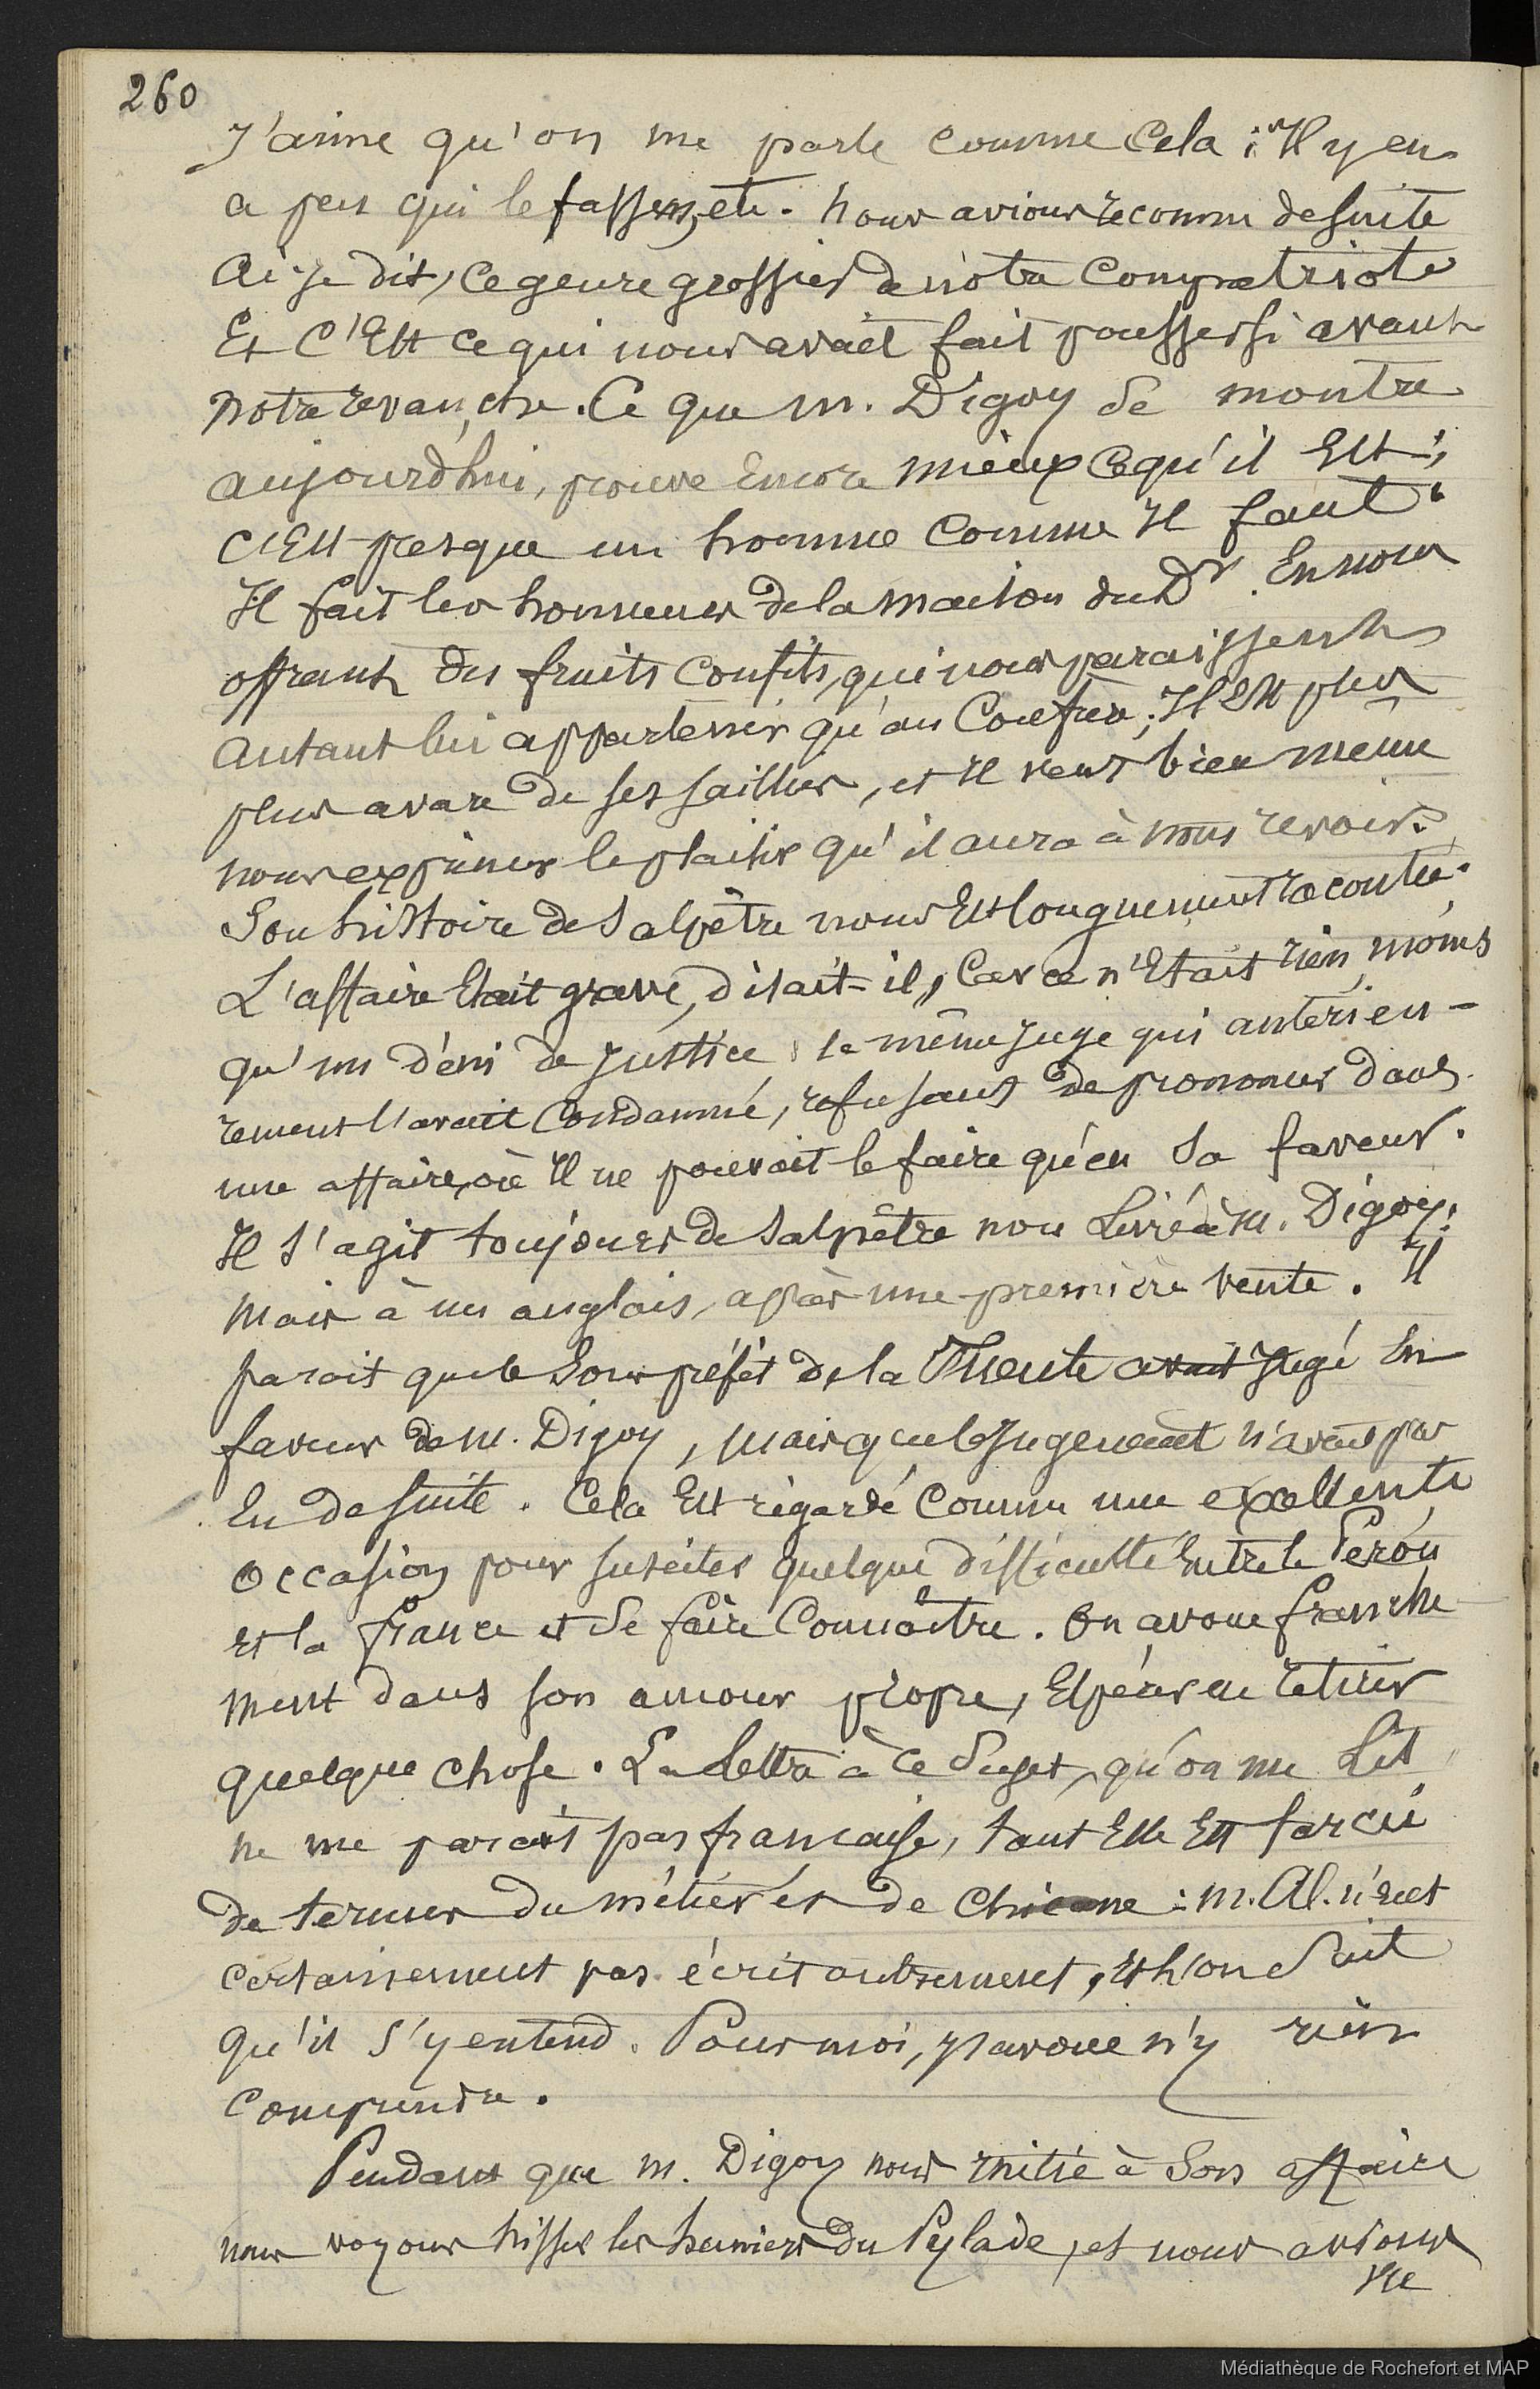 260
J'aime qu'on me parle comme cela : "Il y en
a peu qui le fassent, etc. Nous avions reconnu de suite
ai-je dit, ce genre grossier de notre compatriote
Et c'Est ce qui nous avait fait pousser si avant
notre revanche. Ce que m. Digoy se montre
aujourd'hui, prouve Encore mieux ce qu'il Est ;
c'Est presque un homme comme Il faut.
Il fait les honneurs de la maison du Dr. En nous
offrant des fruits confits, qui nous paraissent
autant lui appartenir qu'au Confrère ; Il Est plus
plus avare de ses saillies, et Il veut bien même
nous exprimer le plaisir qu'il aura à nous revoir.
Son histoire de Salpêtre nous Est longuement racontée.
L'affaire Etait grave, disait-il, Car ce n'Etait rien moins
qu'un déni de justice ; le même juge qui antérieu-
rement l'avait Condamné, refusant de prononcer dans
une affaire, où Il ne pouvait le faire qu'en Sa faveur.
Il s'agit toujours de Salpêtre non Livré à M. Digoy ;
mais à un anglais, après une première vente. Il
parait que le Sous préfet de la avait Jugé En
faveur de M. Digoy, mais que le Jugement n'avait pas
Eu de suite. Cela Est regardé comme une excellente
occasion pour susciter quelque difficulté Entre le Pérou
et la France et Se faire Connaître. On avoue franche
ment dans son amour propre, Espérer en retirer
quelque chose. La Lettre à ce Sujet, qu'on me Lit
ne me parait pas française, tant Elle Est farcie
de termes du métier et de Chicane : m. Al. n'eut
certainement pas écrit autrement, et l'on Sait
qu'il s'y entend. Pour moi, j'avoue n'y rien
Comprendre.
Pendant que m. Digoy nous initie à Son affaire
nous voyons hisser les huniers du Pylade, et nous avions
vu
Médiathèque de Rochefort et MAP